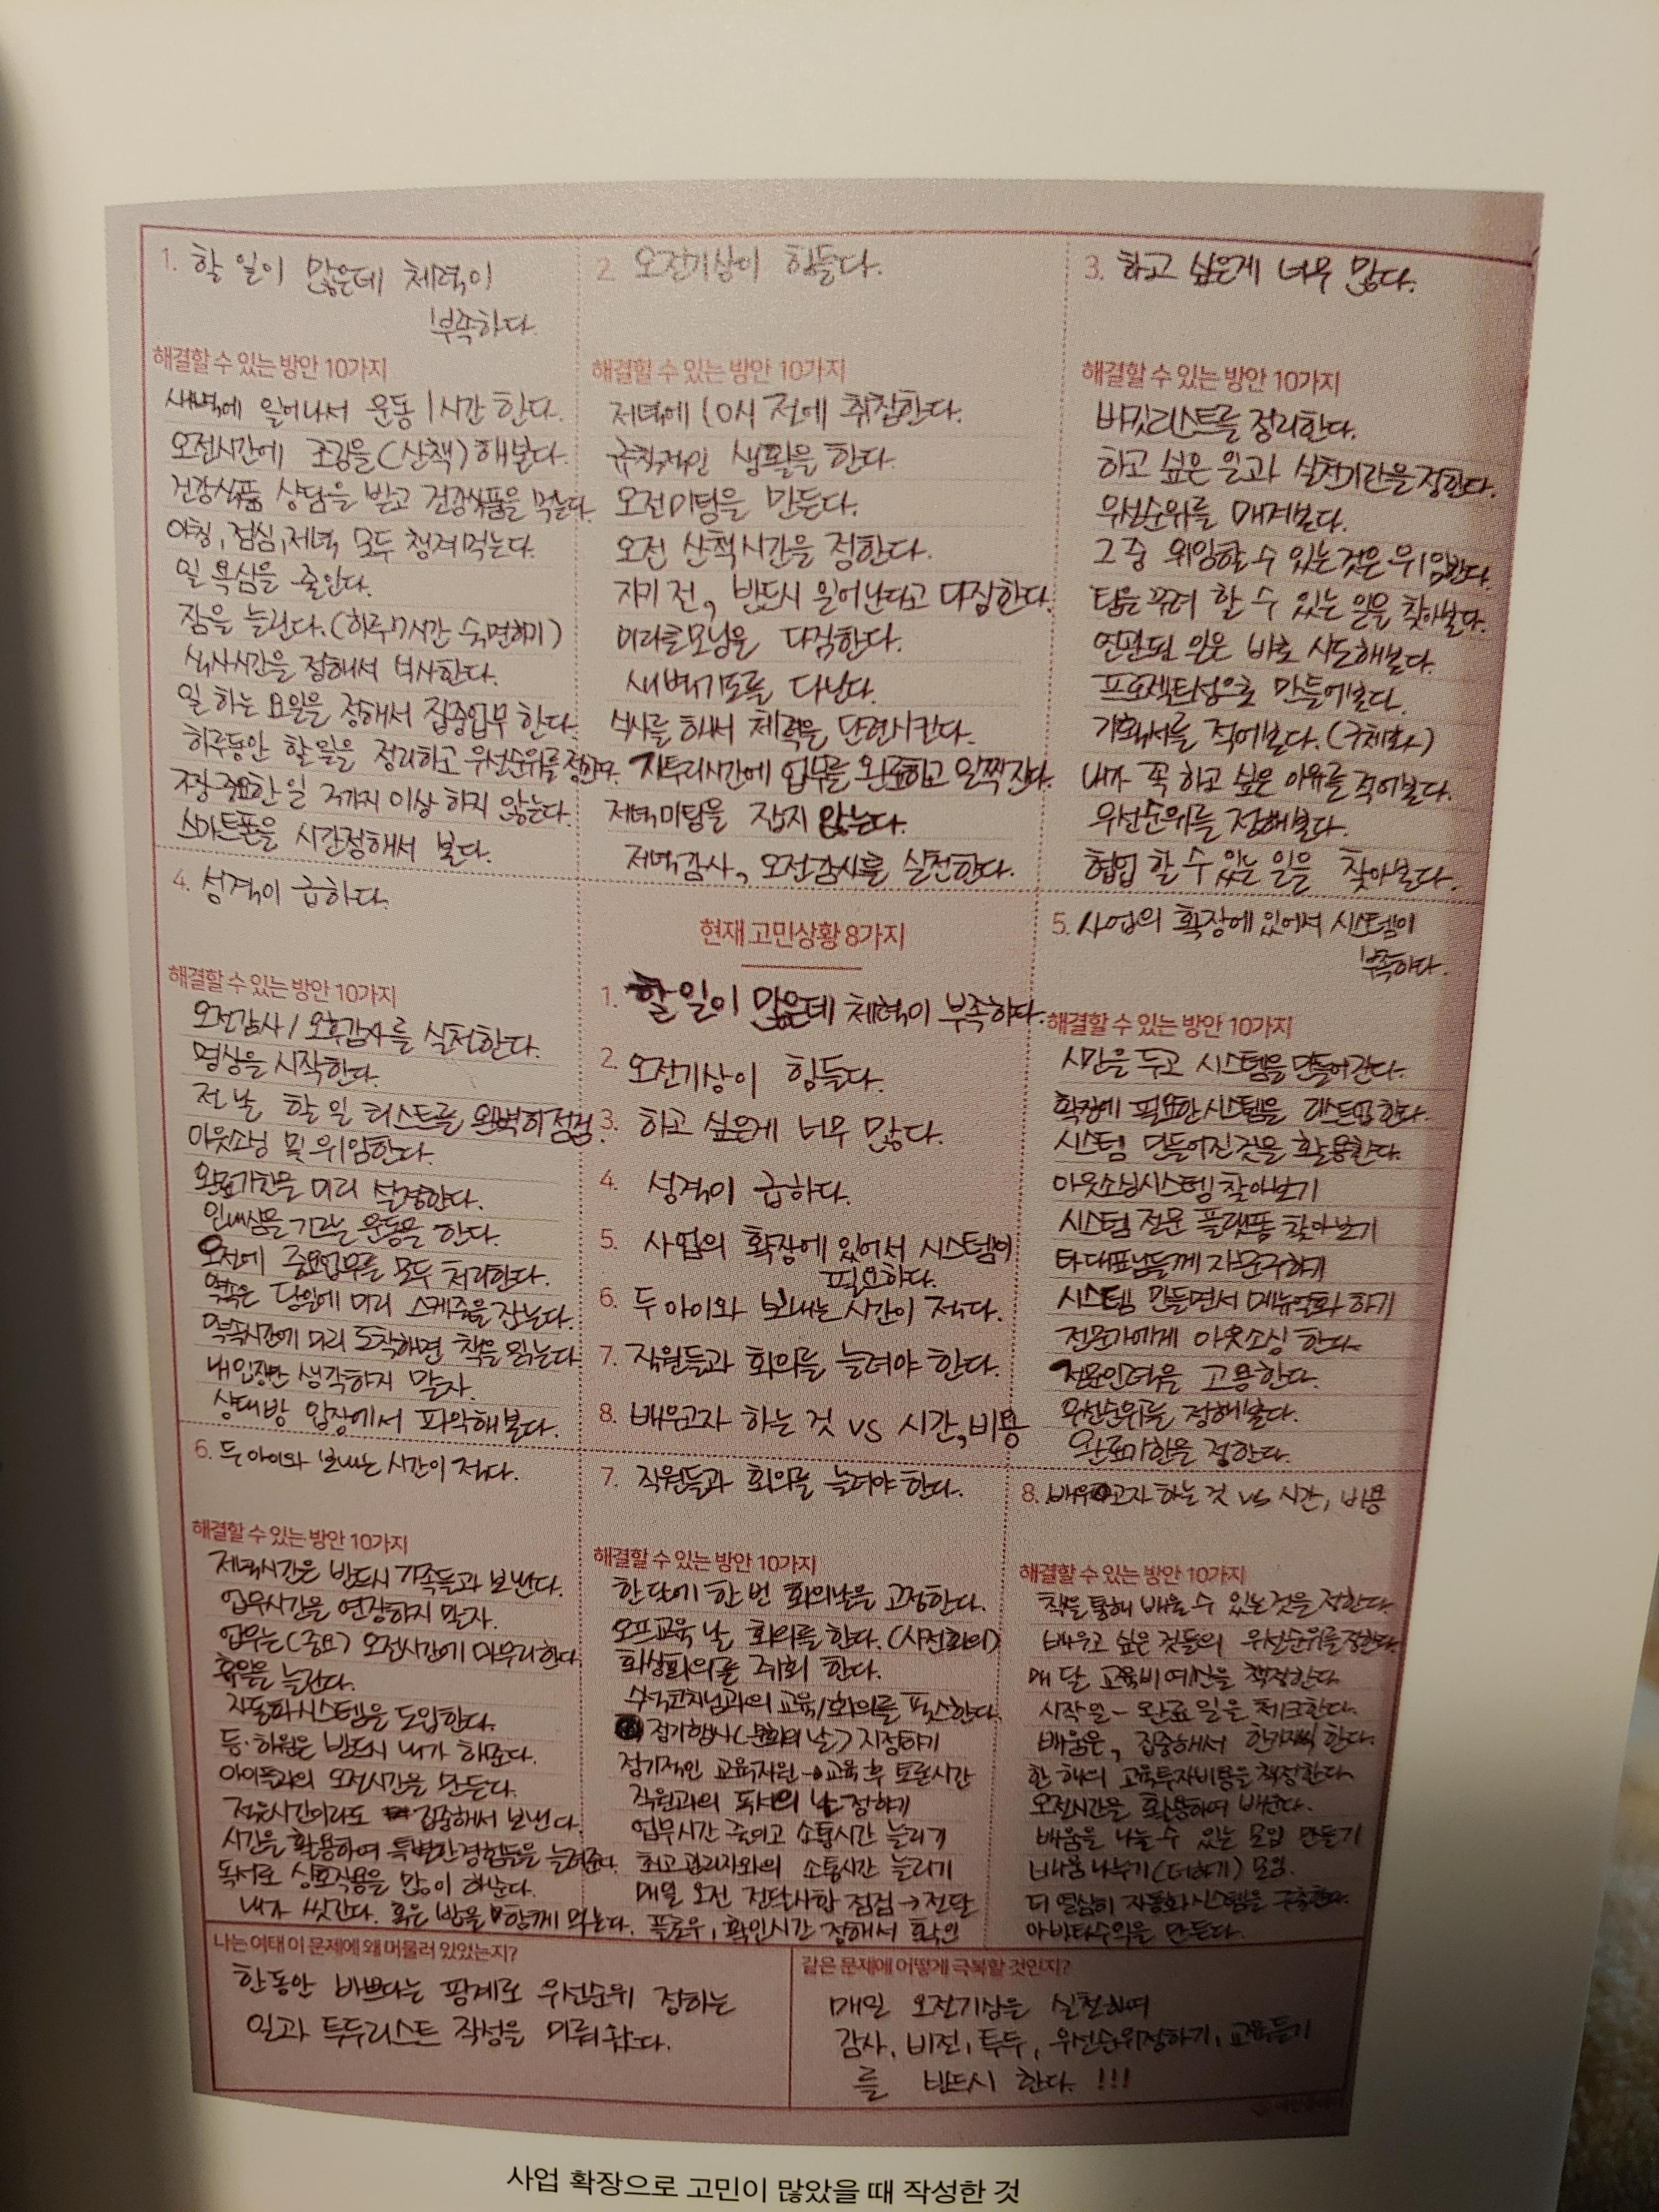 1. 할 일이 많은데 체력이
부족하다.
해결할 수 있는 방안 10가지
새벽에 일어나서 운동 1시간 한다.
오전시간에 조깅을(산책)해본다.
건강식품 상담을 받고 건강식품을 먹는다.
아침, 점심, 저녁 모두 챙겨먹는다.
일 욕심을 줄인다.
잠을 늘린다.(하루 7시간 숙면하기)
식사시간을 정해서 식사한다.
일 하는 요일을 정해서 집중업무 한다.
하루동안 할일을 정리하고 우선순위를
중요한 일 이상 하지 않는다.
스마트폰을 시간정해서 본다.
2. 오전기상이 힘들다.
해결할 수 있는 방안 10가지
저녁에 10시 전에 취침한다.
규칙적인 생활을 한다.
오전미팅을 만든다.
오전 산책시간을 정한다.
자기 전, 반드시 일어난다고 다짐한다.
미라클모닝을 다짐한다.
새벽기도를 다닌다.
식사를 해서 체력을 단련시킨다.
자투리시간에 업무를 완료하고 일찍 잔다.
저녁미팅을 잡지 않는다.
저녁감사, 오전감사를 실천한다.
3. 하고 싶은게 너무 많다.
해결할 수 있는 방안 10가지
버킷리스트를 정리한다.
하고 싶은 일과 실천기간을 정한다.
우선순위를 매겨본다.
그 중 위임할 수 있는 것은 위임한다.
팀을 꾸려 할 수 있는 일을 찾아본다.
연관된 일은 바로 시도해본다.
프로젝트성으로 만들어본다.
기획서를 적어본다.(구체화)
내가 꼭 하고 싶은 이유를 적어본다.
우선순위를 정해본다.
협업 할 수 있는 일을 찾아본다.
4. 성격이 급하다.
해결할 수 있는 방안 10가지
오전감사/오후감사를 실천한다.
명상을 시작한다.
전 날 할 일 리스트를 완벽히 점검.
아웃소싱 및 위임한다.
완료기한을 미리 설정한다.
인내심을 기르는 운동을 한다.
오전에 중요업무를 모두 처리한다.
약속은 당일에 미리 스케줄을 잡는다.
약속시간에 미리 도착하면 책을 읽는다.
내입장만 생각하지 말자.
상대방 입장에서 파악해본다.
현재 고민상황 8가지
1. 할 일이 많은데 체력이 부족하다.
2. 오전기상이 힘들다.
3. 하고 싶은게 너무 많다.
4. 성격이 급하다.
5. 사업의 확장에 있어서 시스템이
필요하다.
6. 두 아이와 보내는 시간이 적다.
7. 직원들과 회의를 늘려야 한다.
8. 배우고자 하는 것 vs 시간, 비용
5. 사업의 확장에 있어서 시스템이
부족하다.
해결할 수 있는 방안 10가지
시간을 두고 시스템을 만들어간다.
확장에 필요한 시스템을 리스트업 한다.
시스템 만들어진 것을 활용한다.
아웃소싱시스템 찾아보기
시스템 전문 플랫폼 찾아보기
타 대표님들께 자문구하기
시스템 만들면서 메뉴얼화 하기
전문가에게 아웃소싱 한다.
전문인력을 고용한다.
우선순위를 정해본다.
완료기한을 정한다.
6. 두 아이와 보내는 시간이 적다.
해결할 수 있는 방안 10가지
저녁시간은 반드시 가족들과 보낸다.
업무시간을 연장하지 말자.
업무는(중요) 오전시간에 마무리한다.
휴일을 늘린다.
자동화시스템을 도입한다.
등·하원은 반드시 내가 해준다.
아이들과의 오전시간을 만든다.
적은시간이라도 집중해서 보낸다.
시간을 활용하여 특별한경험들을 늘려준다.
독서로 상호작용을 많이 해준다.
내가 씻긴다. 혹은 밥을 함께 먹는다.
7. 직원들과 회의를 늘려야 한다.
해결할 수 있는 방안 10가지
한 달에 한 번 회의날을 고정한다.
오프교육 날 회의를 한다. (사전회의)
화상회의를 한다.
교육/회의를 픽스한다.
정기행사(문화의 날) 지정하기
정기적인 교육지원→교육 후 토론시간
직원과의 독서의 날 정하기
업무시간 줄이고 소통시간 늘리기
최고관리자와의 소통시간 늘리기
매일 오전 전달사항 점검→전달
플로우, 확인시간 정해서 확인
8. 배우고자 하는 것 vs 시간, 비용
해결할 수 있는 방안 10가지
책을 통해 배울 수 있는 것을 정한다.
배우고 싶은 것들의 우선순위를 정한다.
매 달 교육비 예산을 책정한다.
시작일-완료일을 체크한다.
배움은, 집중해서 한가지씩 한다.
한 해의 교육투자비용을 책정한다.
오전시간을 활용하여 배운다.
배움을 나눌 수 있는 모임 만들기
배움 나누기(더하기) 모임.
더 열심히 자동화시스템을 구축한다.
아바타수익을 만든다.
나는 여태 이 문제에 왜 머물러 있었는지?
한동안 바쁘다는 핑계로 우선순위 정하는
일과 투두리스트 작성을 미뤄왔다.
같은 문제에 어떻게 극복할 것인지?
매일 오전기상을 실천하여
감사, 비전, 투두, 우선순위정하기, 교육듣기
를 반드시 한다!!!
사업 확장으로 고민이 많았을 때 작성한 것